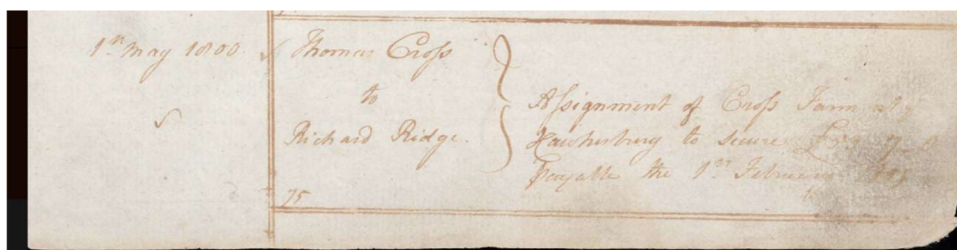 1st May 1800.
Thomas Cross
to
Richard Ridge.
Assignment of Cross Farm at
Hawkesbury to secure
Payable the 1st February
75